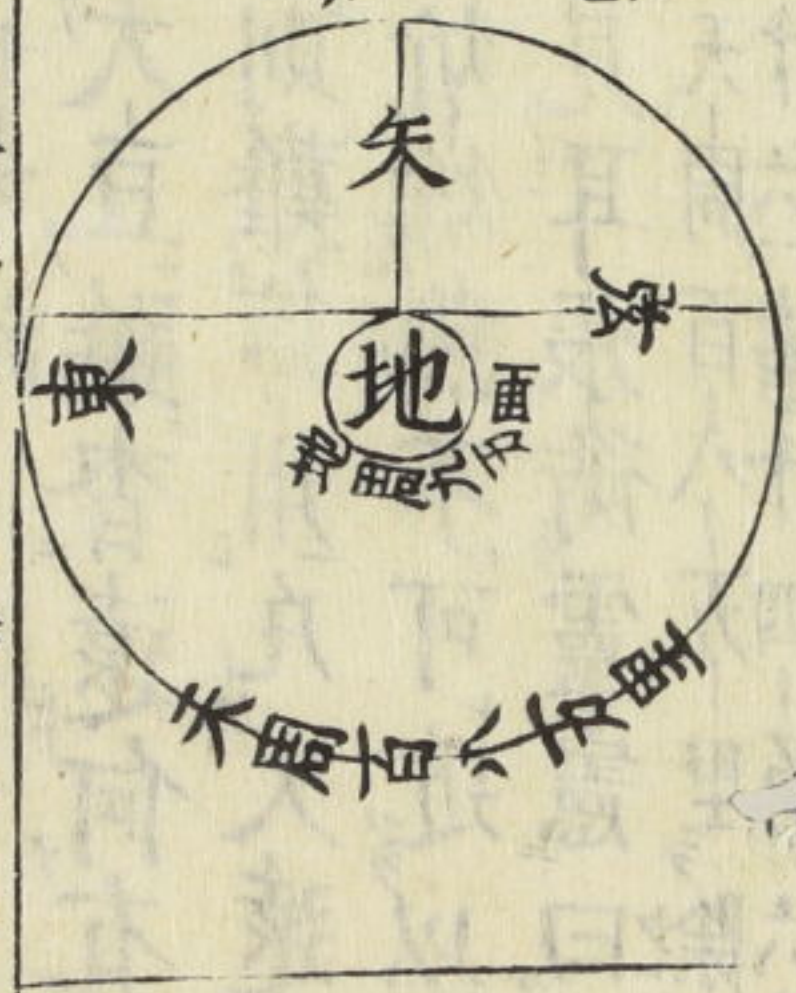 矢
東
地
地周九万里
天周百八万里